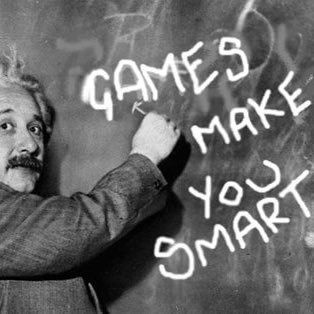 GAMES
MAKE
YOU
SMART